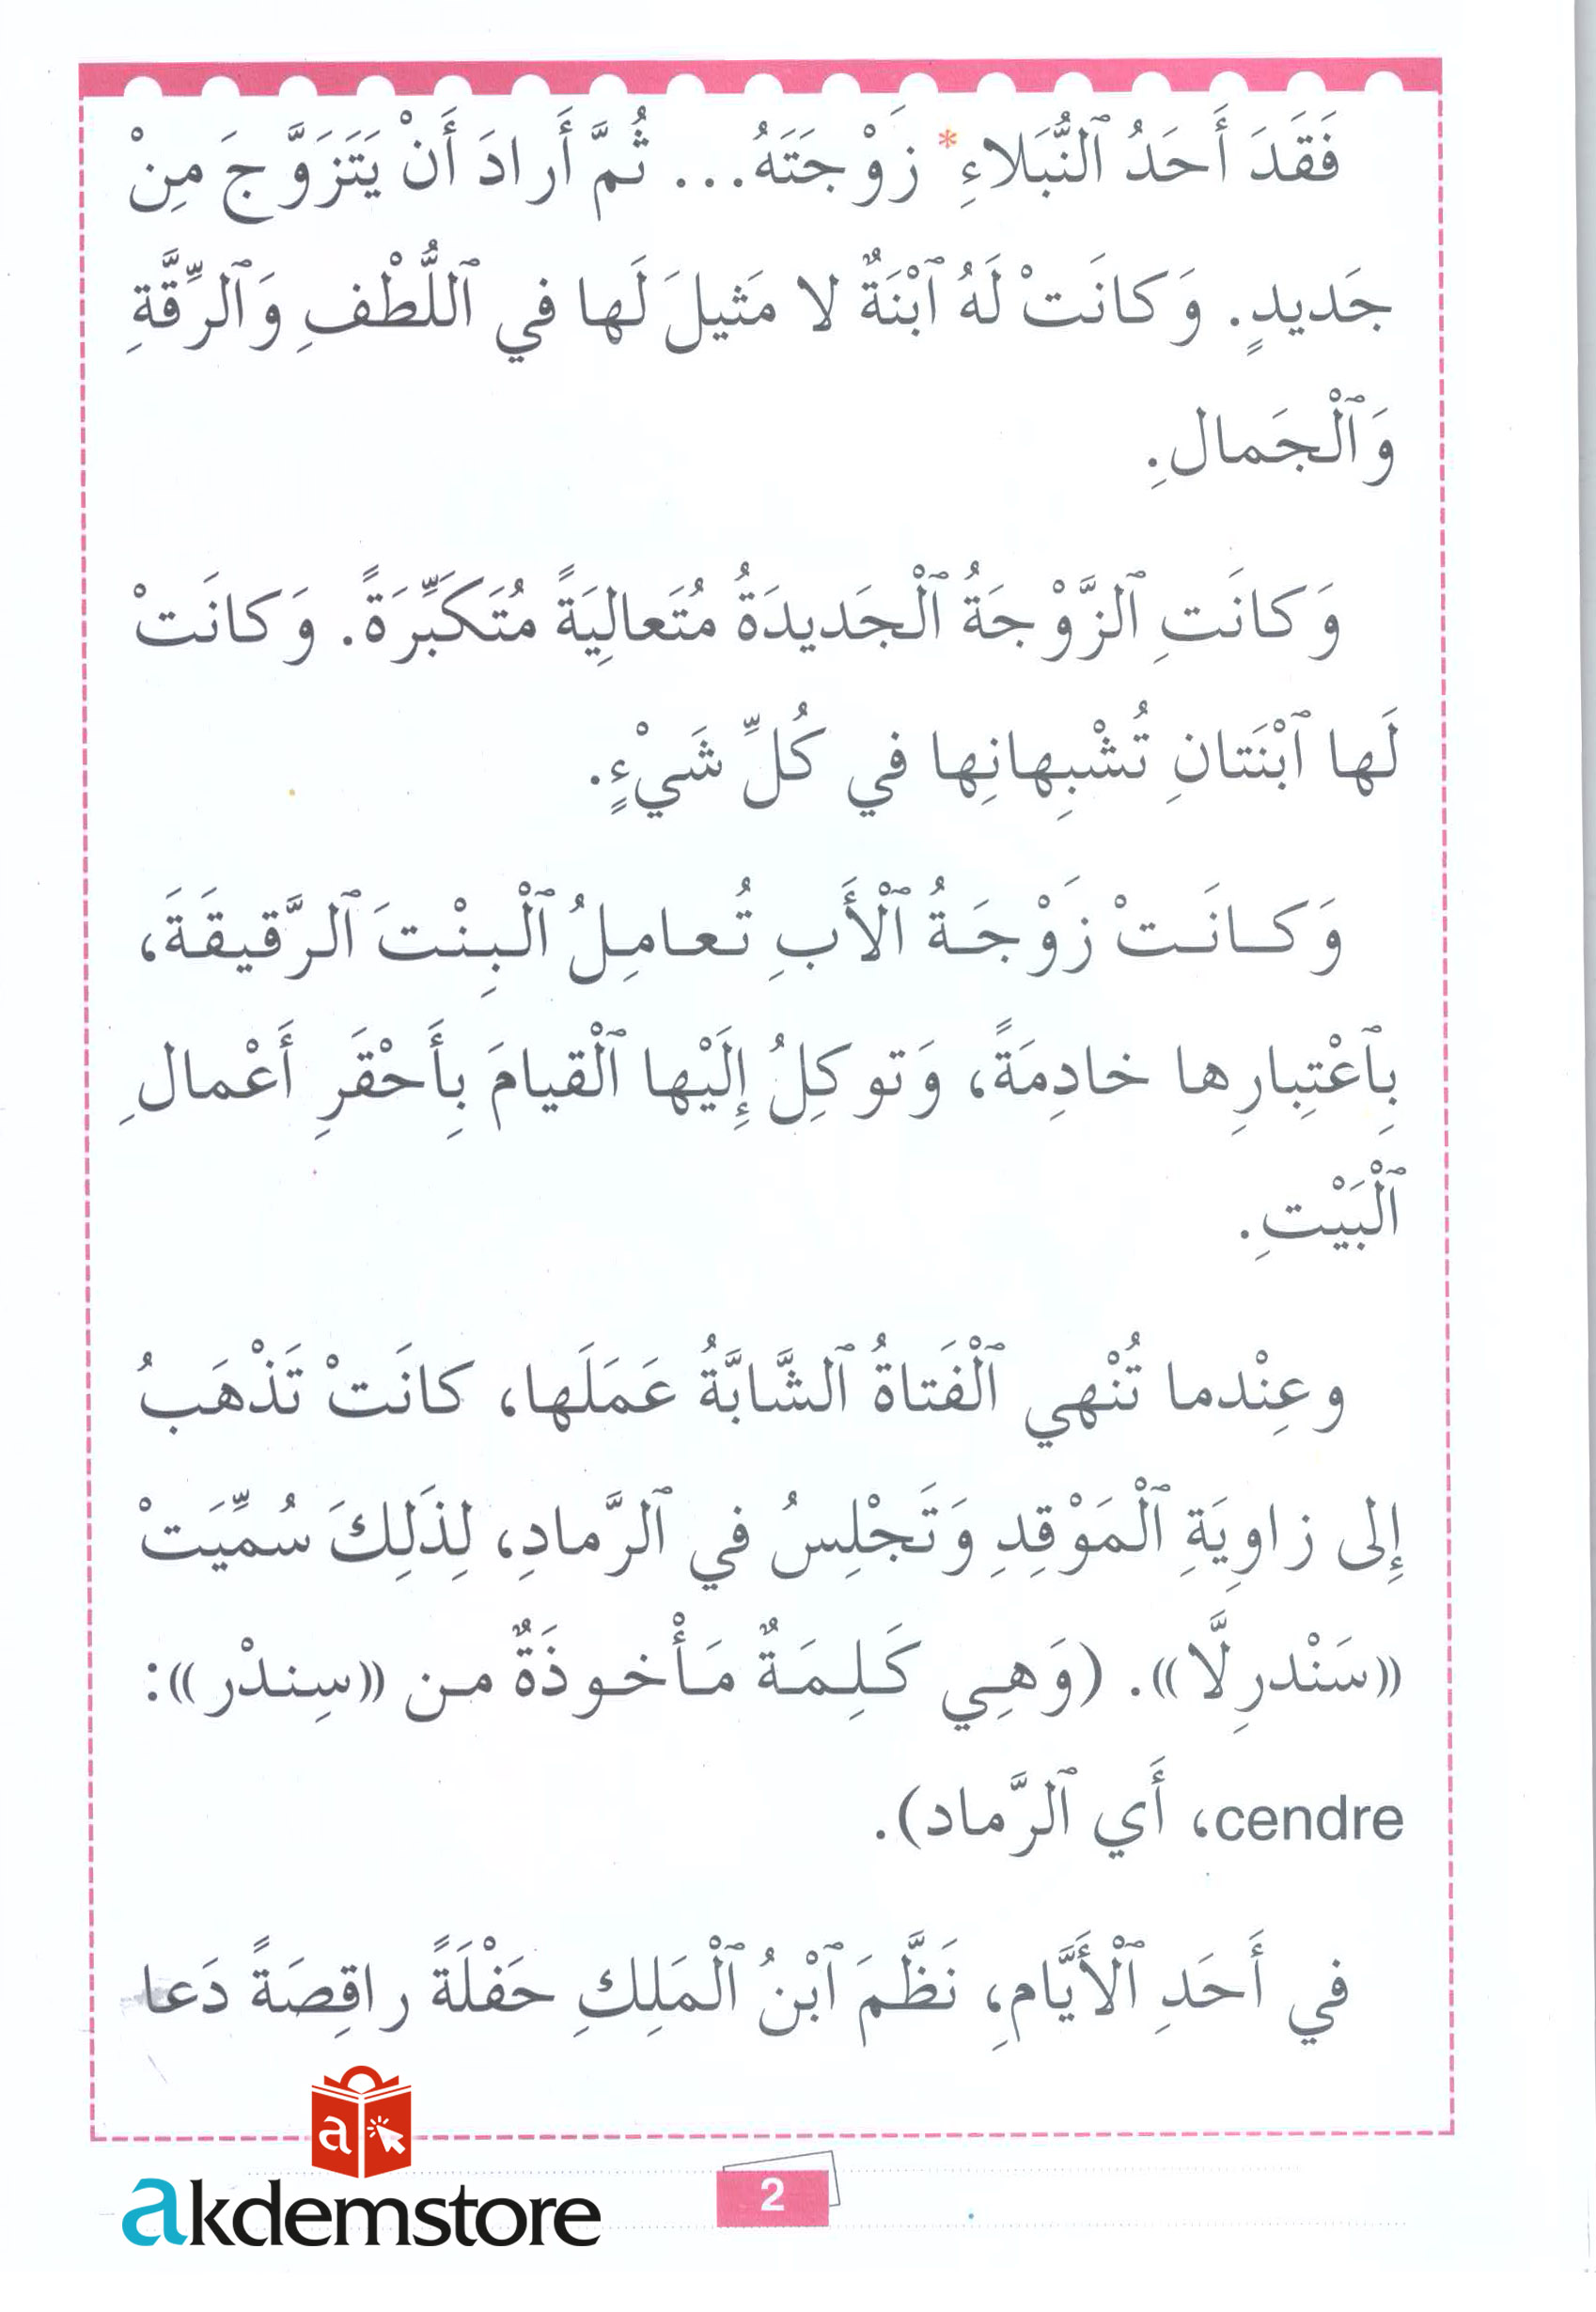 فَقَدَ أَحَدُ ٱلنُّبَلاءِ* زَوْجَتَهُ... ثُمَّ أَرادَ أَنْ يَتَزَوَّجَ مِنْ
جَديدٍ. وَكانَتْ لَهُ ٱبْنَةٌ لا مَثيلَ لَها في ٱللُّطْفِ وَٱلرِّقَّةِ
وَٱلْجَمالِ.
وَكانَتِ ٱلزَّوْجَةُ ٱلْجَديدَةُ مُتَعالِيَةً مُتَكَبِّرَةً. وَكانَتْ
لَها ٱبْنَتانِ تُشْبِهانِها في كُلِّ شَيْءٍ.
وَكانَتْ زَوْجَةُ ٱلْأَبِ تُعامِلُ ٱلْبِنْتَ ٱلرَّقيقَةَ،
بِٱعْتِبارِها خادِمَةً، وَتوكِلُ إِلَيْها ٱلْقيامَ بِأَحْقَرِ أَعْمالِ
ٱلْبَيْتِ.
وعِنْدما تُنْهي ٱلْفَتاةُ ٱلشَّابَّةُ عَمَلَها، كانَتْ تَذْهَبُ
إِلى زاوِيَةِ ٱلْمَوْقِدِ وَتَجْلِسُ في ٱلرَّمادِ، لِذَلِكَ سُمِّيَتْ
«سَنْدرِلَّا». (وَهِي كَلِمَةٌ مَأْخوذَةٌ من «سِندْر»:
cendre، أَي ٱلرَّماد).
في أَحَدِ ٱلْأَيَّامِ، نَظَّمَ ٱبْنُ ٱلْمَلِكِ حَفْلَةً راقِصَةً دَعا
a
akdemstore
2